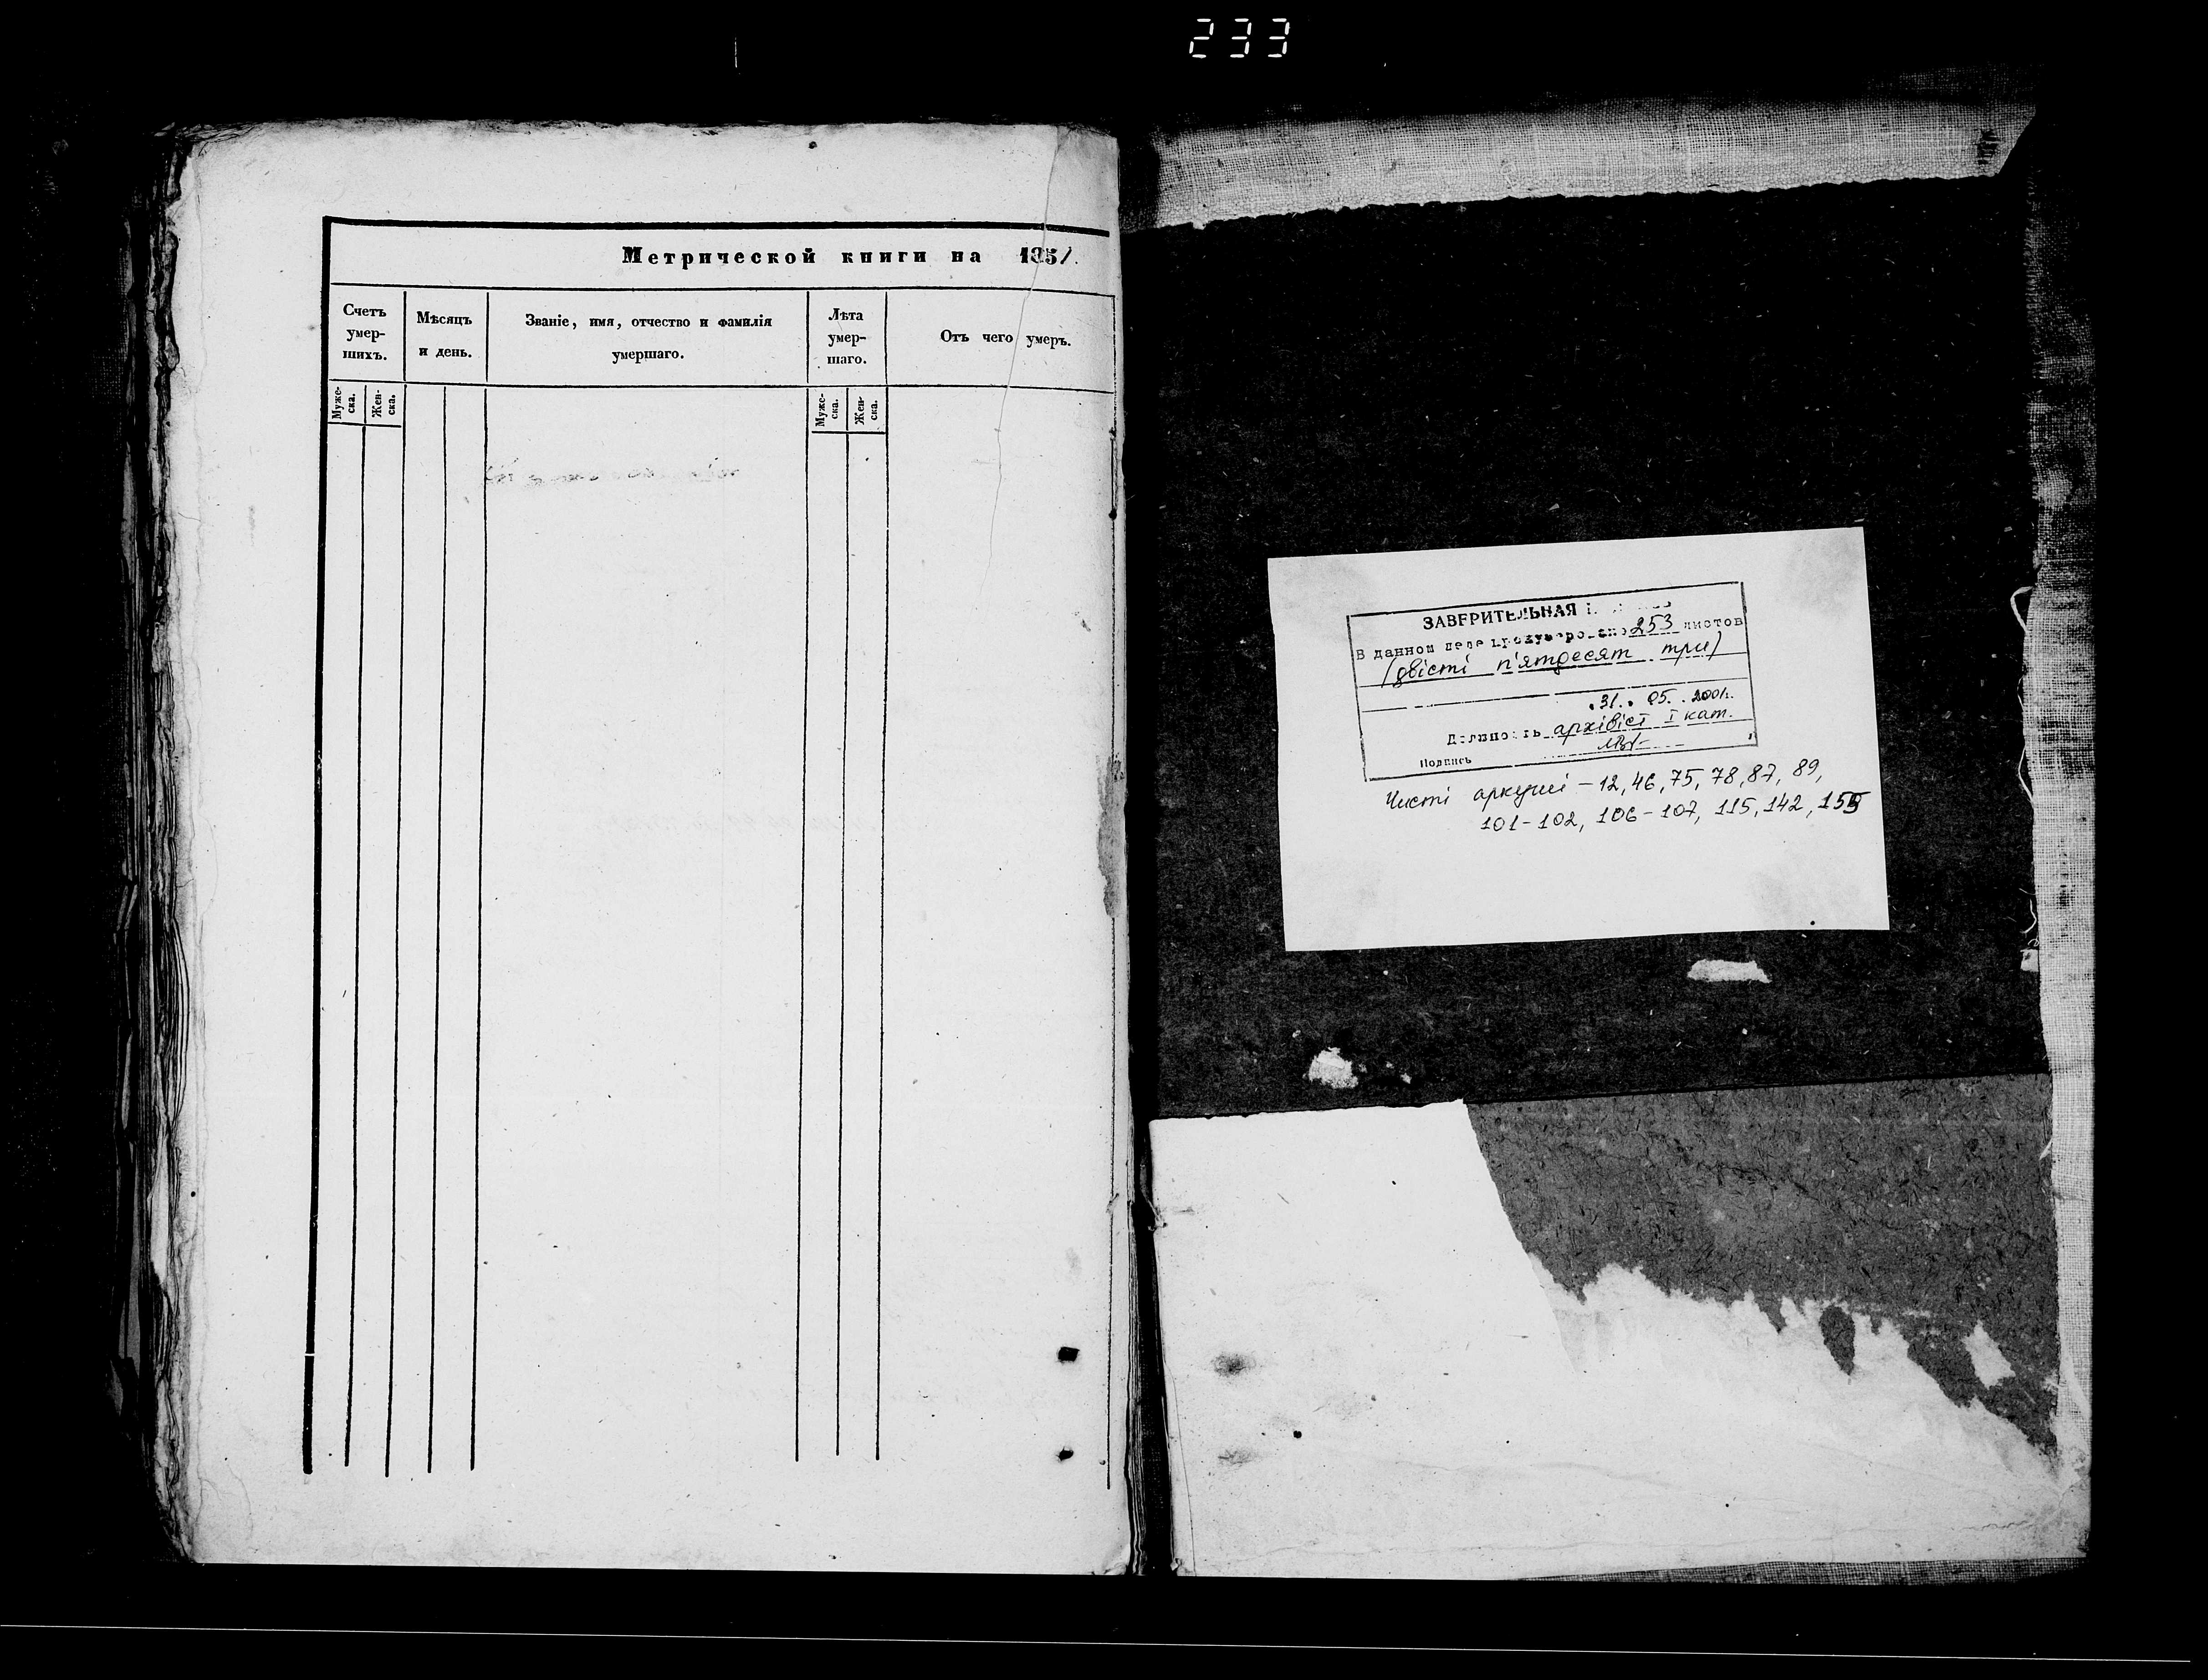 233
Метрической книги на 1851.
Счетъ умер-шихъ.
Мѣсяцъ и день.
Званіе, имя, отчество и фамилія умершаго.
Лѣта умер-шаго.
Отъ чего умеръ.
Муже-ска.
Жен-ска.
Муже-ска.
Жен-ска.
ЗАВЕРИТЕЛЬНАЯ
В данном деле пронумеровано 253 листов
(двісті п'ятдесят три)
31. 05. 2001г.
Должность архівіст I кат.
Подпись
Чисті аркуші – 12, 46, 75, 78, 87, 89,
101-102, 106-107, 115, 142,